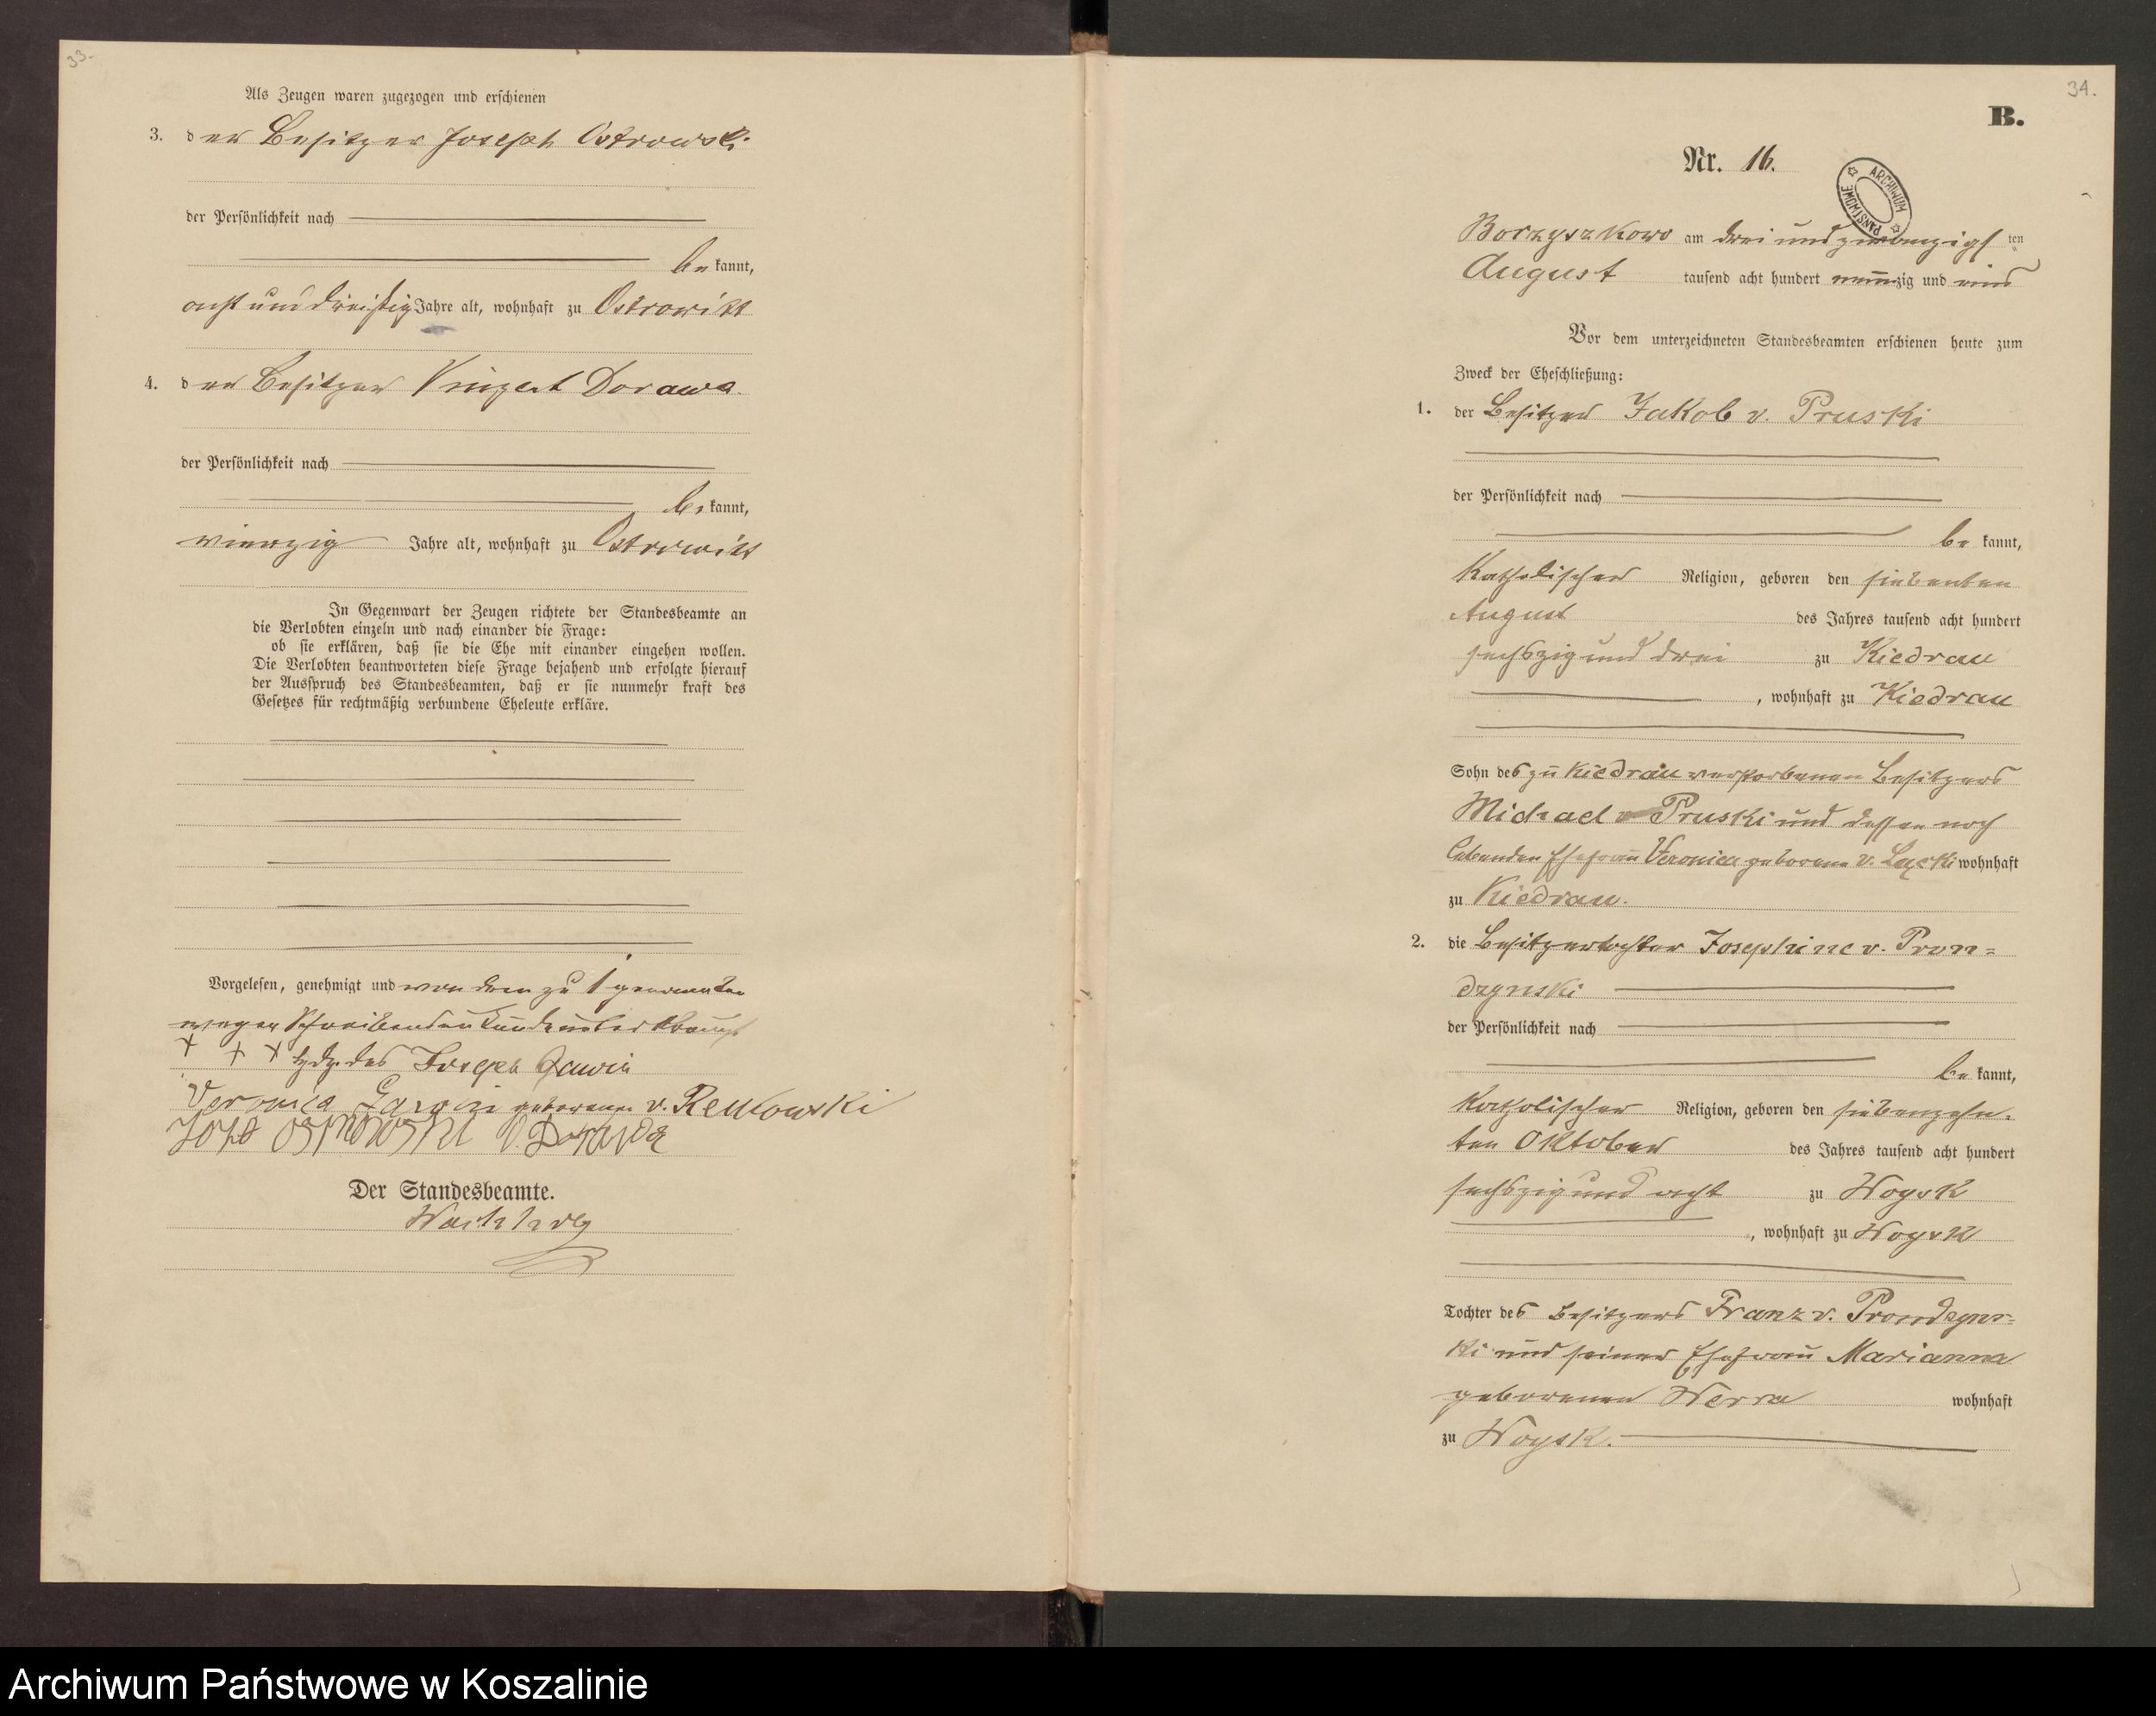 33.
Als Zeugen waren zugezogen und erschienen
3. der Besitzer Joseph Ostrowski
der Persönlichkeit nach
bekannt,
acht und dreißig Jahre alt, wohnhaft zu Ostrowitt
4. der Besitzer Vinzent Dorawa.
der Persönlichkeit nach
bekannt,
vierzig Jahre alt, wohnhaft zu Ostrowitt
In Gegenwart der Zeugen richtete der Standesbeamte an
die Verlobten einzeln und nach einander die Frage:
ob sie erklären, daß sie die Ehe mit einander eingehen wollen.
Die Verlobten beantworteten diese Frage bejahend und erfolgte hierauf
der Ausspruch des Standesbeamten, daß er sie nunmehr kraft des
Gesetzes für rechtmäßig verbundene Eheleute erkläre.
Vorgelesen, genehmigt und von dem zu 1 genannten
wegen Schreibensunkunde unterkreuzt
+ + + Hdz. des Joseph
Veronica geborene v.
V. Dorawa
Der Standesbeamte.
34.
B.
Nr. 16.
ARCHIWUM PAŃSTWOWE
Borzyszkowo am drei und zwanzigsten
August tausend acht hundert neunzig und eins
Vor dem unterzeichneten Standesbeamten erschienen heute zum
Zweck der Eheschließung:
1. der Besitzer Jakob v. Pruski
der Persönlichkeit nach
bekannt,
katholischer Religion, geboren den siebenten
August des Jahres tausend acht hundert
sechszig und drei zu Kiedrau
, wohnhaft zu Kiedrau
Sohn des zu Kiedrau verstorbenen Besitzers
Michael v Pruski und dessen noch
lebenden Ehefrau Veronica geborene v. wohnhaft
zu Kiedrau.
2. die Besitzertochter Josephine v. Pron=
dzynski
der Persönlichkeit nach
bekannt,
katholischer Religion, geboren den siebenzehn-
ten Oktober des Jahres tausend acht hundert
sechszig und acht zu Woysk
, wohnhaft zu Woysk
Tochter des Besitzers Franz v. Prondzyns=
ki und seiner Ehefrau Marianna
geborenen Werra wohnhaft
zu Woysk.
Archiwum Państwowe w Koszalinie